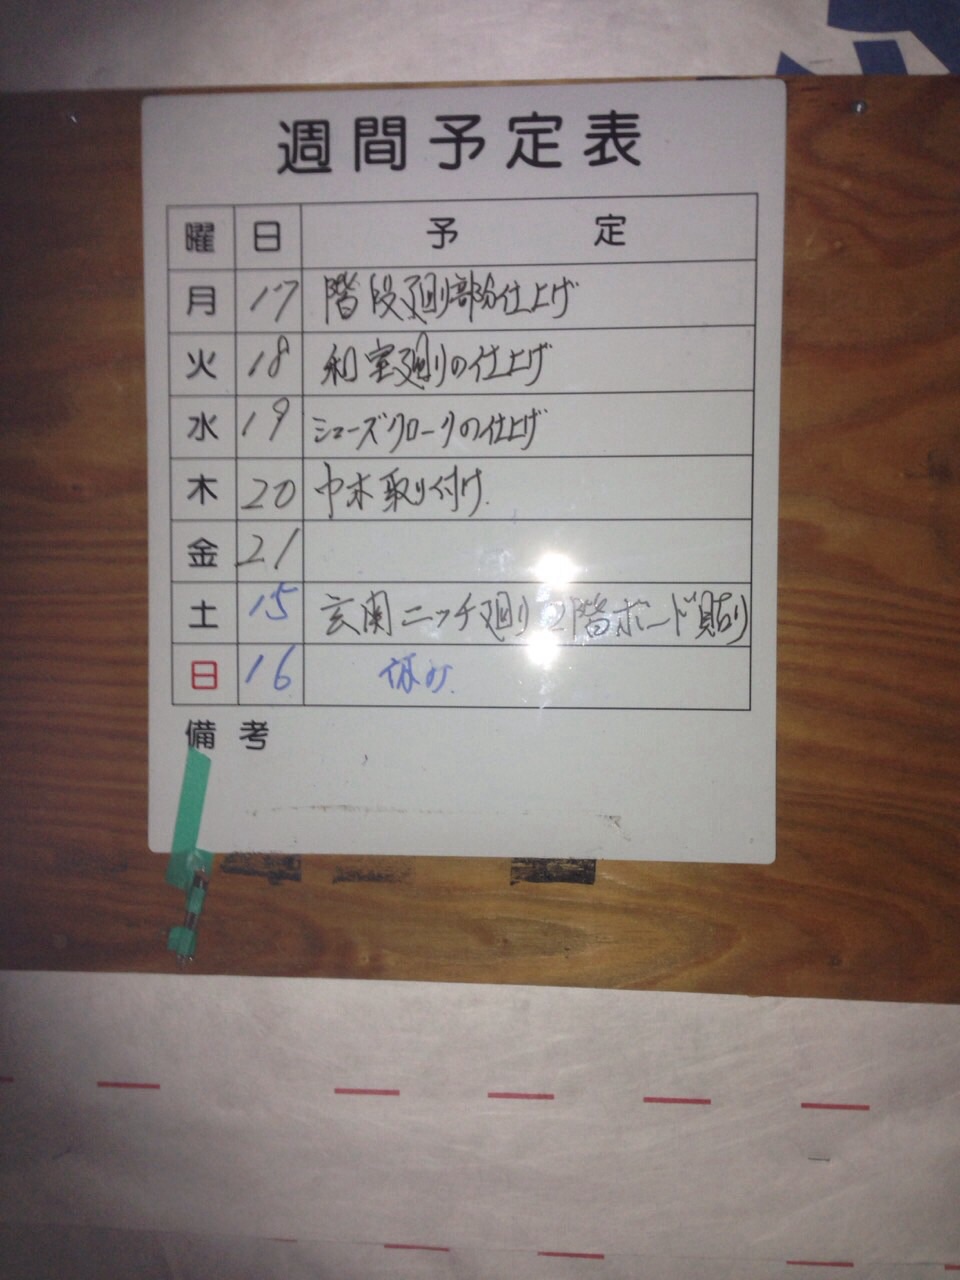 週間予定表
曜 日 予定
月 17 階段廻り部分仕上げ
火 18 和室廻りの仕上げ
水 19 シューズクロークの仕上げ
木 20 巾木取り付け.
金 21
土 15 玄関ニッチ廻り 2階ボード貼り
日 16 休み.
備考